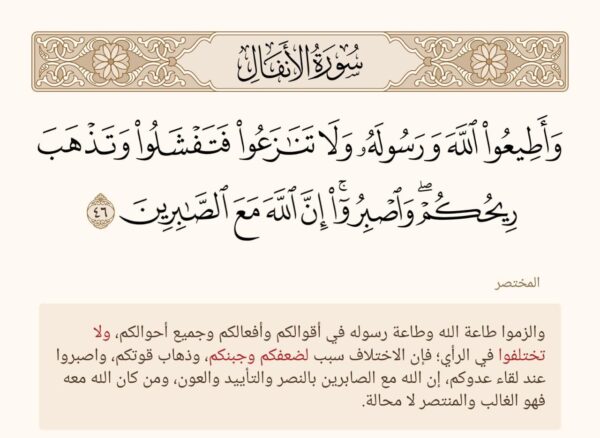 سُورَةُ الأَنفَالِ
وَأَطِيعُوا۟ ٱللَّهَ وَرَسُولَهُۥ وَلَا تَنَٰزَعُوا۟ فَتَفْشَلُوا۟ وَتَذْهَبَ
رِيحُكُمْ ۖ وَٱصْبِرُوٓا۟ ۚ إِنَّ ٱللَّهَ مَعَ ٱلصَّٰبِرِينَ ٤٦
المختصر
والزموا طاعة الله وطاعة رسوله في أقوالكم وأفعالكم وجميع أحوالكم، ولا
تختلفوا في الرأي؛ فإن الاختلاف سبب لضعفكم وجبنكم، وذهاب قوتكم، واصبروا
عند لقاء عدوكم، إن الله مع الصابرين بالنصر والتأييد والعون، ومن كان الله معه
فهو الغالب والمنتصر لا محالة.